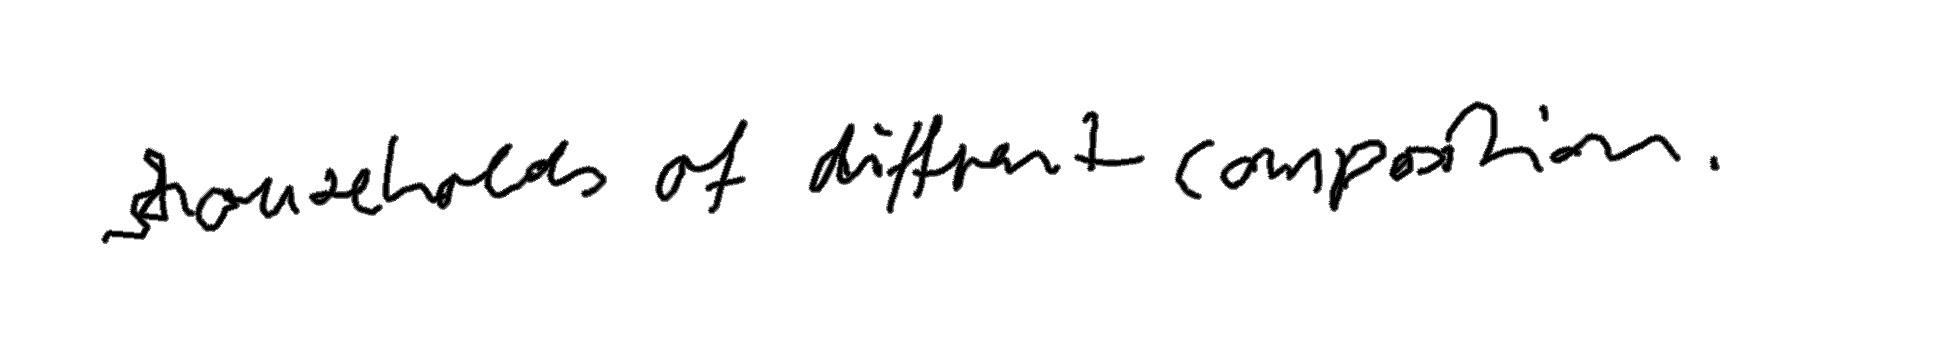 households of different composition.